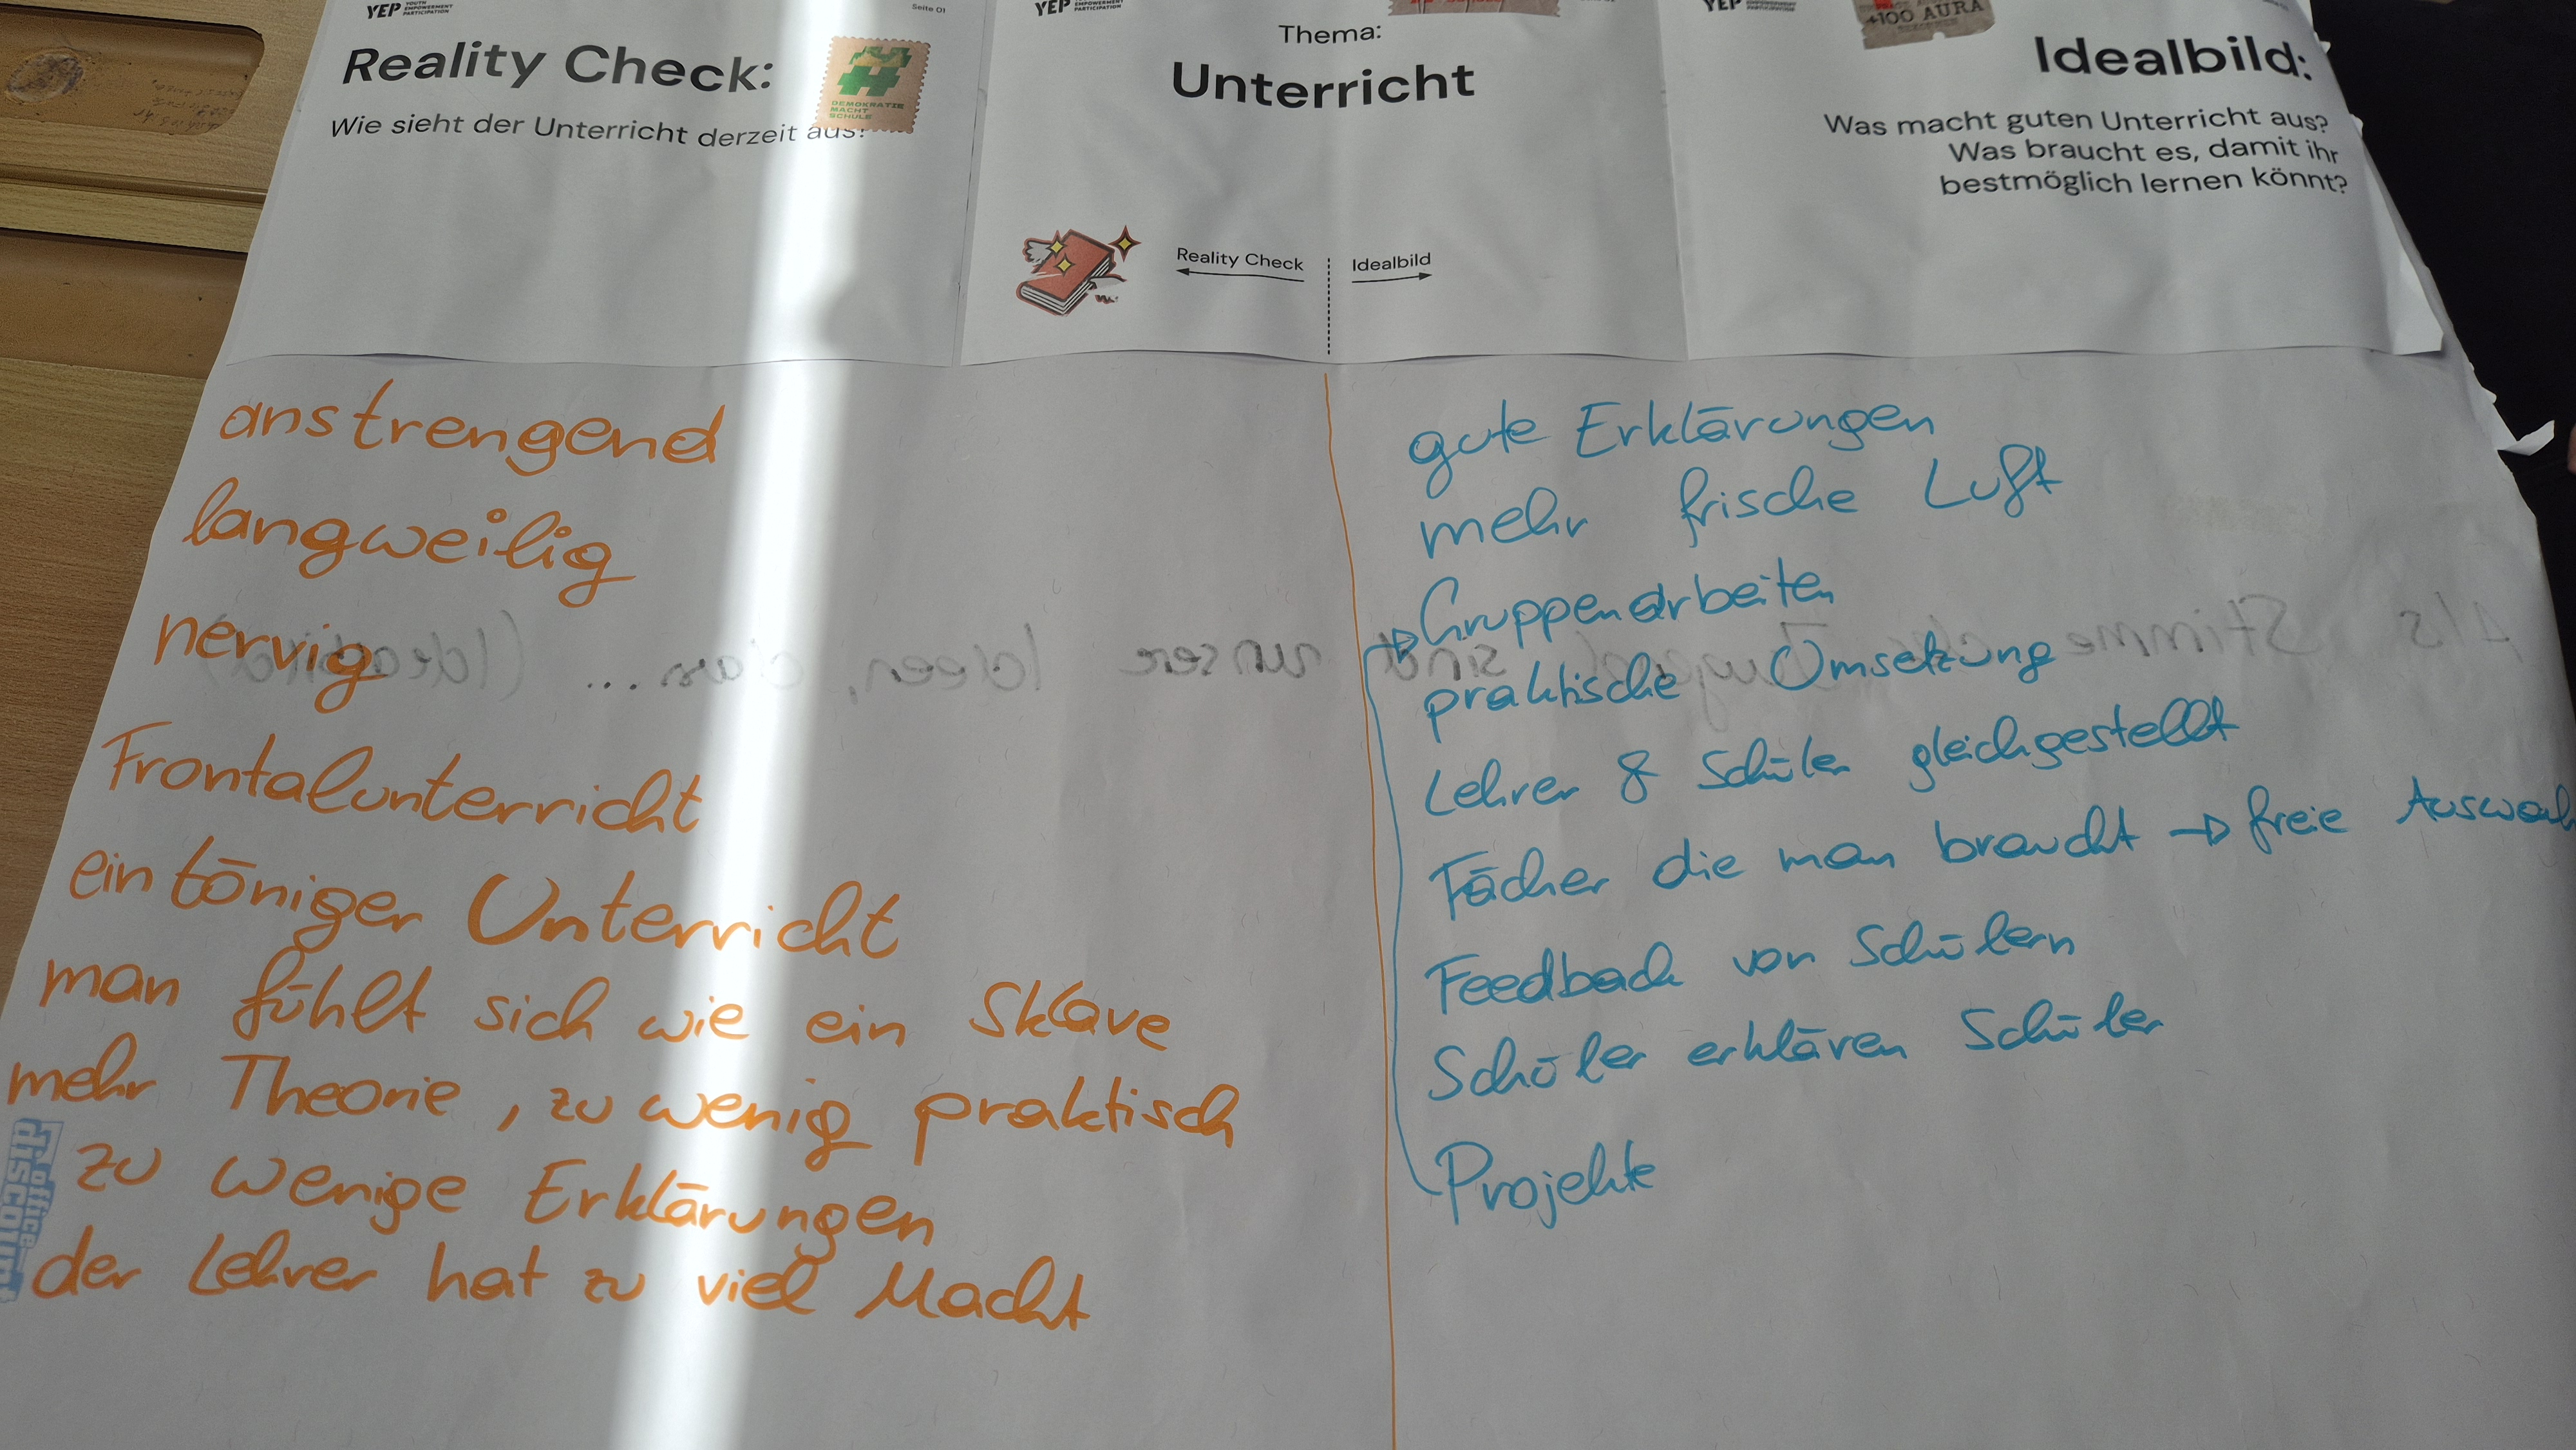 YEP YOUTH EMPOWERMENT PARTICIPATION
Seite 01
Reality Check:
Wie sieht der Unterricht derzeit aus?
DEMOKRATIE
MACHT
SCHULE
anstrengend
langweilig
nervig
Frontalunterricht
eintöniger Unterricht
man fühlt sich wie ein Sklave
mehr Theorie, zu wenig praktisch
zu wenige Erklärungen
der Lehrer hat zu viel Macht
office
discount
YEP EMPOWERMENT PARTICIPATION
Thema:
Unterricht
Reality Check
Idealbild
YEP
+100 AURA
Idealbild:
Was macht guten Unterricht aus?
Was braucht es, damit ihr
bestmöglich lernen könnt?
gute Erklärungen
mehr frische Luft
Gruppenarbeiten
praktische Umsetzung
Lehrer & Schüler gleichgestellt
Fächer die man braucht → freie Auswah
Feedback von Schülern
Schüler erklären Schüler
Projekte
Als Stimme der Jugend sind unsere Ideen, dass ... (Idealbild)